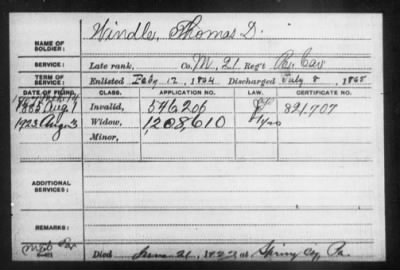 NAME OF SOLDIER: Windle, Thomas D.
SERVICE: Late rank, Co. M, 21 Reg't Pa. Cav
TERM OF SERVICE: Enlisted Feby 12, 1864 Discharged July 8, 1865
DATE OF FILING. CLASS. APPLICATION NO. LAW. CERTIFICATE NO.
1885 Aug 1 Invalid, 546206 891,707
1923 Aug 3 Widow, 1,208,610
Minor,
ADDITIONAL SERVICES:
REMARKS:
Died June 21, 1923 at Spring Cy, Pa.